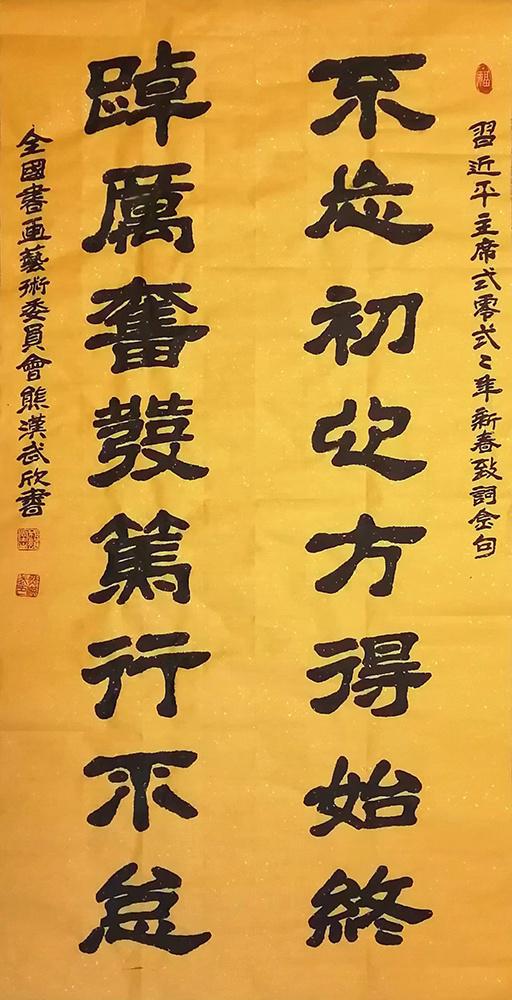 福
習近平主席弍零弍〻年新春致詞金句
不忘初心方得始終
踔厲奮發篤行不怠
全國書画藝術委員會熊漢武欣書